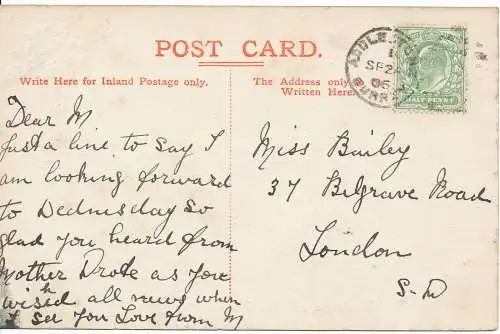 POST CARD.
Write Here for Inland Postage only.
Dear M
Just a line to Say I
am looking forward
to Wednesday So
glad you heard from
Mother Wrote as you
wished all news when
I see you Love from M
The Address only
Written Here.
Miss Bailey
37 Belgrave Road
London
S.W
ADDLE
SP 2
05
SURR
HALF PENNY